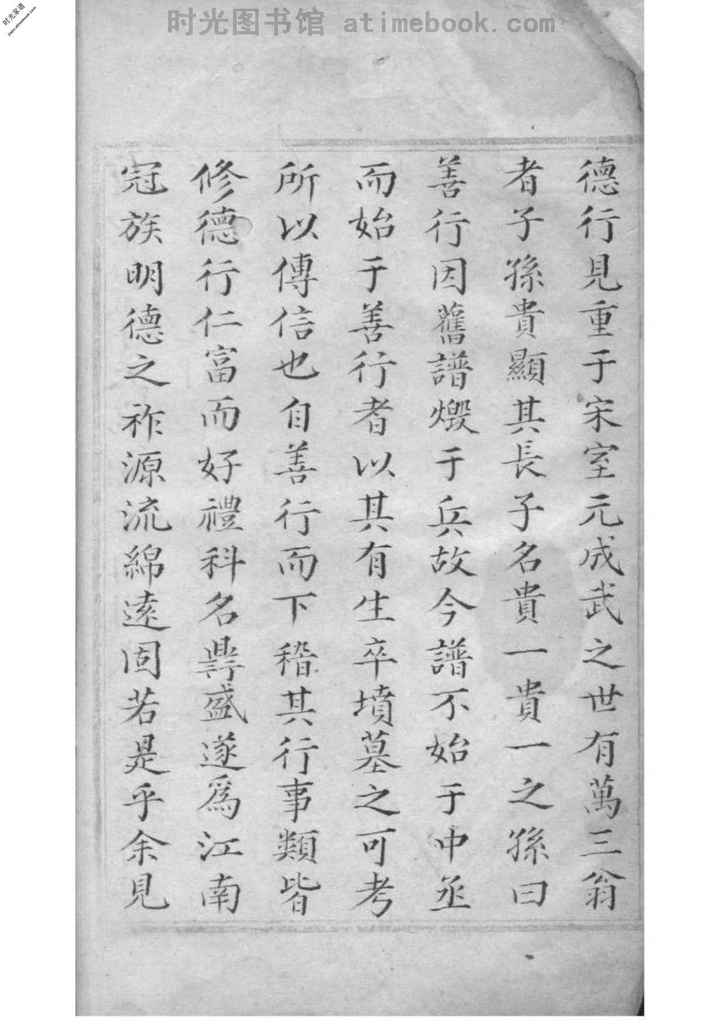 时光图书馆 atimebook.com
时光家谱
www.atimebook.com
德行見重于宋室元成武之世有萬三翁
者子孫貴顯其長子名貴一貴一之孫曰
善行因舊譜燬于兵故今譜不始于中丞
而始于善行者以其有生卒墳墓之可考
所以傳信也自善行而下稽其行事類皆
修德行仁富而好禮科名鼎盛遂爲江南
冠族明德之祚源流綿遠固若是乎余見